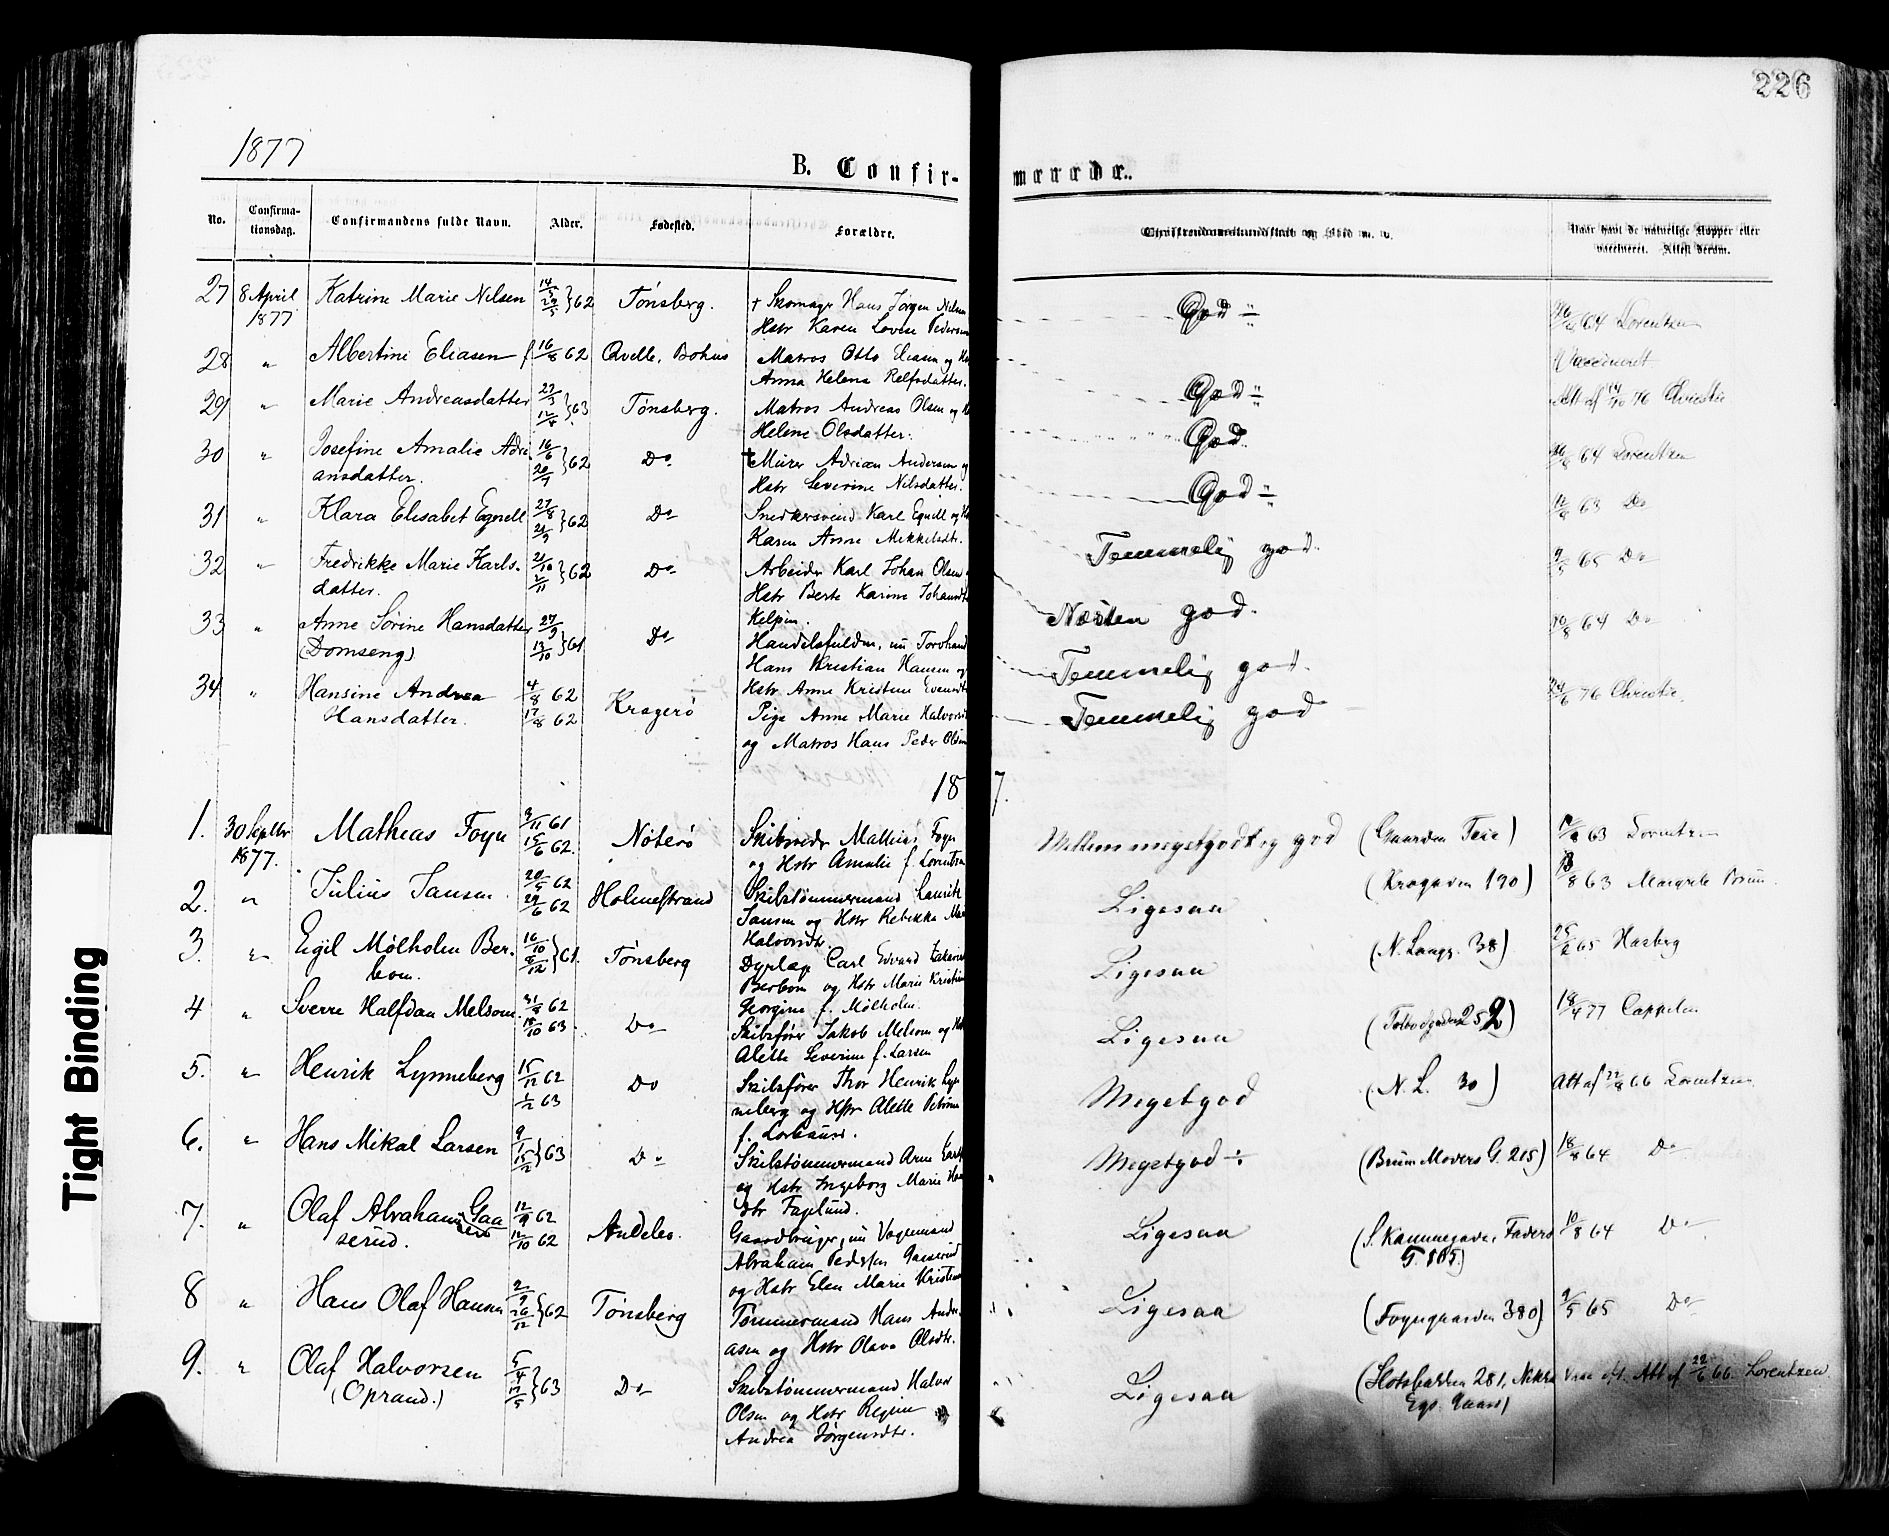 226
1877
B. Confirmerede.
No.
Confirma-
tionsdag.
Confirmandens fulde Navn.
Alder.
Fødested.
Forældre.
Christendomskundskab og Flid m. v.
Naar havt de naturlige Kopper eller
vaccineret. Attest derom.
27 8 April 1877 Katrine Marie Nilsen 62 Tønsberg.
† Skomagr Hans Jørgen Nilsen
Hstr Karen Lovise Pedersen
God ÷
64 Lorentzen
28 " Albertine Eliasen 16/8 62 Qville, Bohus
Matros Otto Eliasen og
Anna Helena Relfsdatter.
Vaccineret
29 " Marie Andreasdatter 63 Tønsberg.
Matros Andreas Olsen og
Helene Olsdatter.
God ÷
Att af 76 Christie
30 " Josefine Amalie Adri
ansdatter. 16/6 62 Do
† Murer Adrian Andersen og
Hstr Severine Nilsdatter.
God
64 Lorentzen
31 " Klara Elisabet Egnell 27/8 62 Do
Snedkersvend Karl Egnell og
Karen Anne Mikkelsdtr.
God ÷
63 Do
32 " Fredrikke Marie Karls-
datter. 2/10 1/11 62 Do
Arbeider Karl Johan Olsen
Hstr Berte Karine Johansdtr
Temmelig god.
65 Do
33 " Anne Sørine Hansdatter
(Domseng) 27/9 13/10 61 Do
Handelsfuldm., nu
Hans Kristian Hansen og
Hstr. Anne Kristine Evensdtr
Næsten god.
64 Do
34 " Hansine Andrea
Hansdatter. 4/8 62 17/8 62 Kragerø
Pige Anne Marie Halvorsd
og Matros Hans Peder Olsen
Temmelig god.
Temmelig god
76 Christie.
18 7.
1. 30 Septbr 1877. Mathias Foyn 3/11 61 15/6 62. Nøterø
Skibsreder Mathias Foyn
og Hstr Amalie f. Lorentzen
Mellem megetgodt og god (Gaarden Teie) 63 Lorentzen
2. " Julius Jansen 20/5 62 29/6 62 Holmestrand
Skibstømmermand Laurits
Jansen og Hstr Rebekka
Halvorsdtr.
Ligesaa (Kragaden 190) /8 63 Margrete Bruun.
3. " Egil Mølholm Ber-
bom. 16/10 8/12 61. Tønsberg
Dyrlæge Carl Edvard
Berbom og Hstr Marie Kristine
Georgine f. Mølholm.
Ligesaa (N. Langg. 38) 65 Hasberg
4 " Sverre Halfdan Melsom. 62 63. Do
Skibsfører Jakob Melsom og
Alette Severine f. Larsen
Ligesaa (Tolbodgaden 252) 18/4 77 Cappelen
5. " Henrik Lynneberg 15/12 62 1/12 63 Do
Skibsfører Thor Henrik Lyn
neberg og Hstr Alette Petrine
f.
Megetgod (N. L. 30) Att af 66 Lorentzen
6. " Hans Mikal Larsen 9/1 15/12 63 Do
Skibstømmermand Arne
og Hstr Ingeborg Marie
dtr Fagelund.
Megetgod ÷ (Bruun Movers G. 215) 18/8 64 Do
7. " Olaf Abrahamsen Gaa
serud. 12/9 62 12/10 62 Andebo.
Gaardbruger, nu Vognmand
Abraham Pedersen Gaaserud
og Hstr Elen Marie Kristine
Ligesaa (S. Kammegade, Faders
G. 185) 10/8 64 Do
8 " Hans Olaf Hansen 2/9 26/12 62 Tønsberg
Tømmermand Hans Andre-
asen og Hstr Olava Olsdtr.
Ligesaa (Foyngaarden 380) 9/5 65 Do
9. " Olaf Halvorsen
(Oprand.) 5/4 17/5 63 Do
Skibstømmermand Halvor
Olsen og Hstr Regine
Andrea Jørgensdtr.
Ligesaa (Slotsbakken 281, Gaard) Att af 22/6 66. Lorentzen
Tight Binding